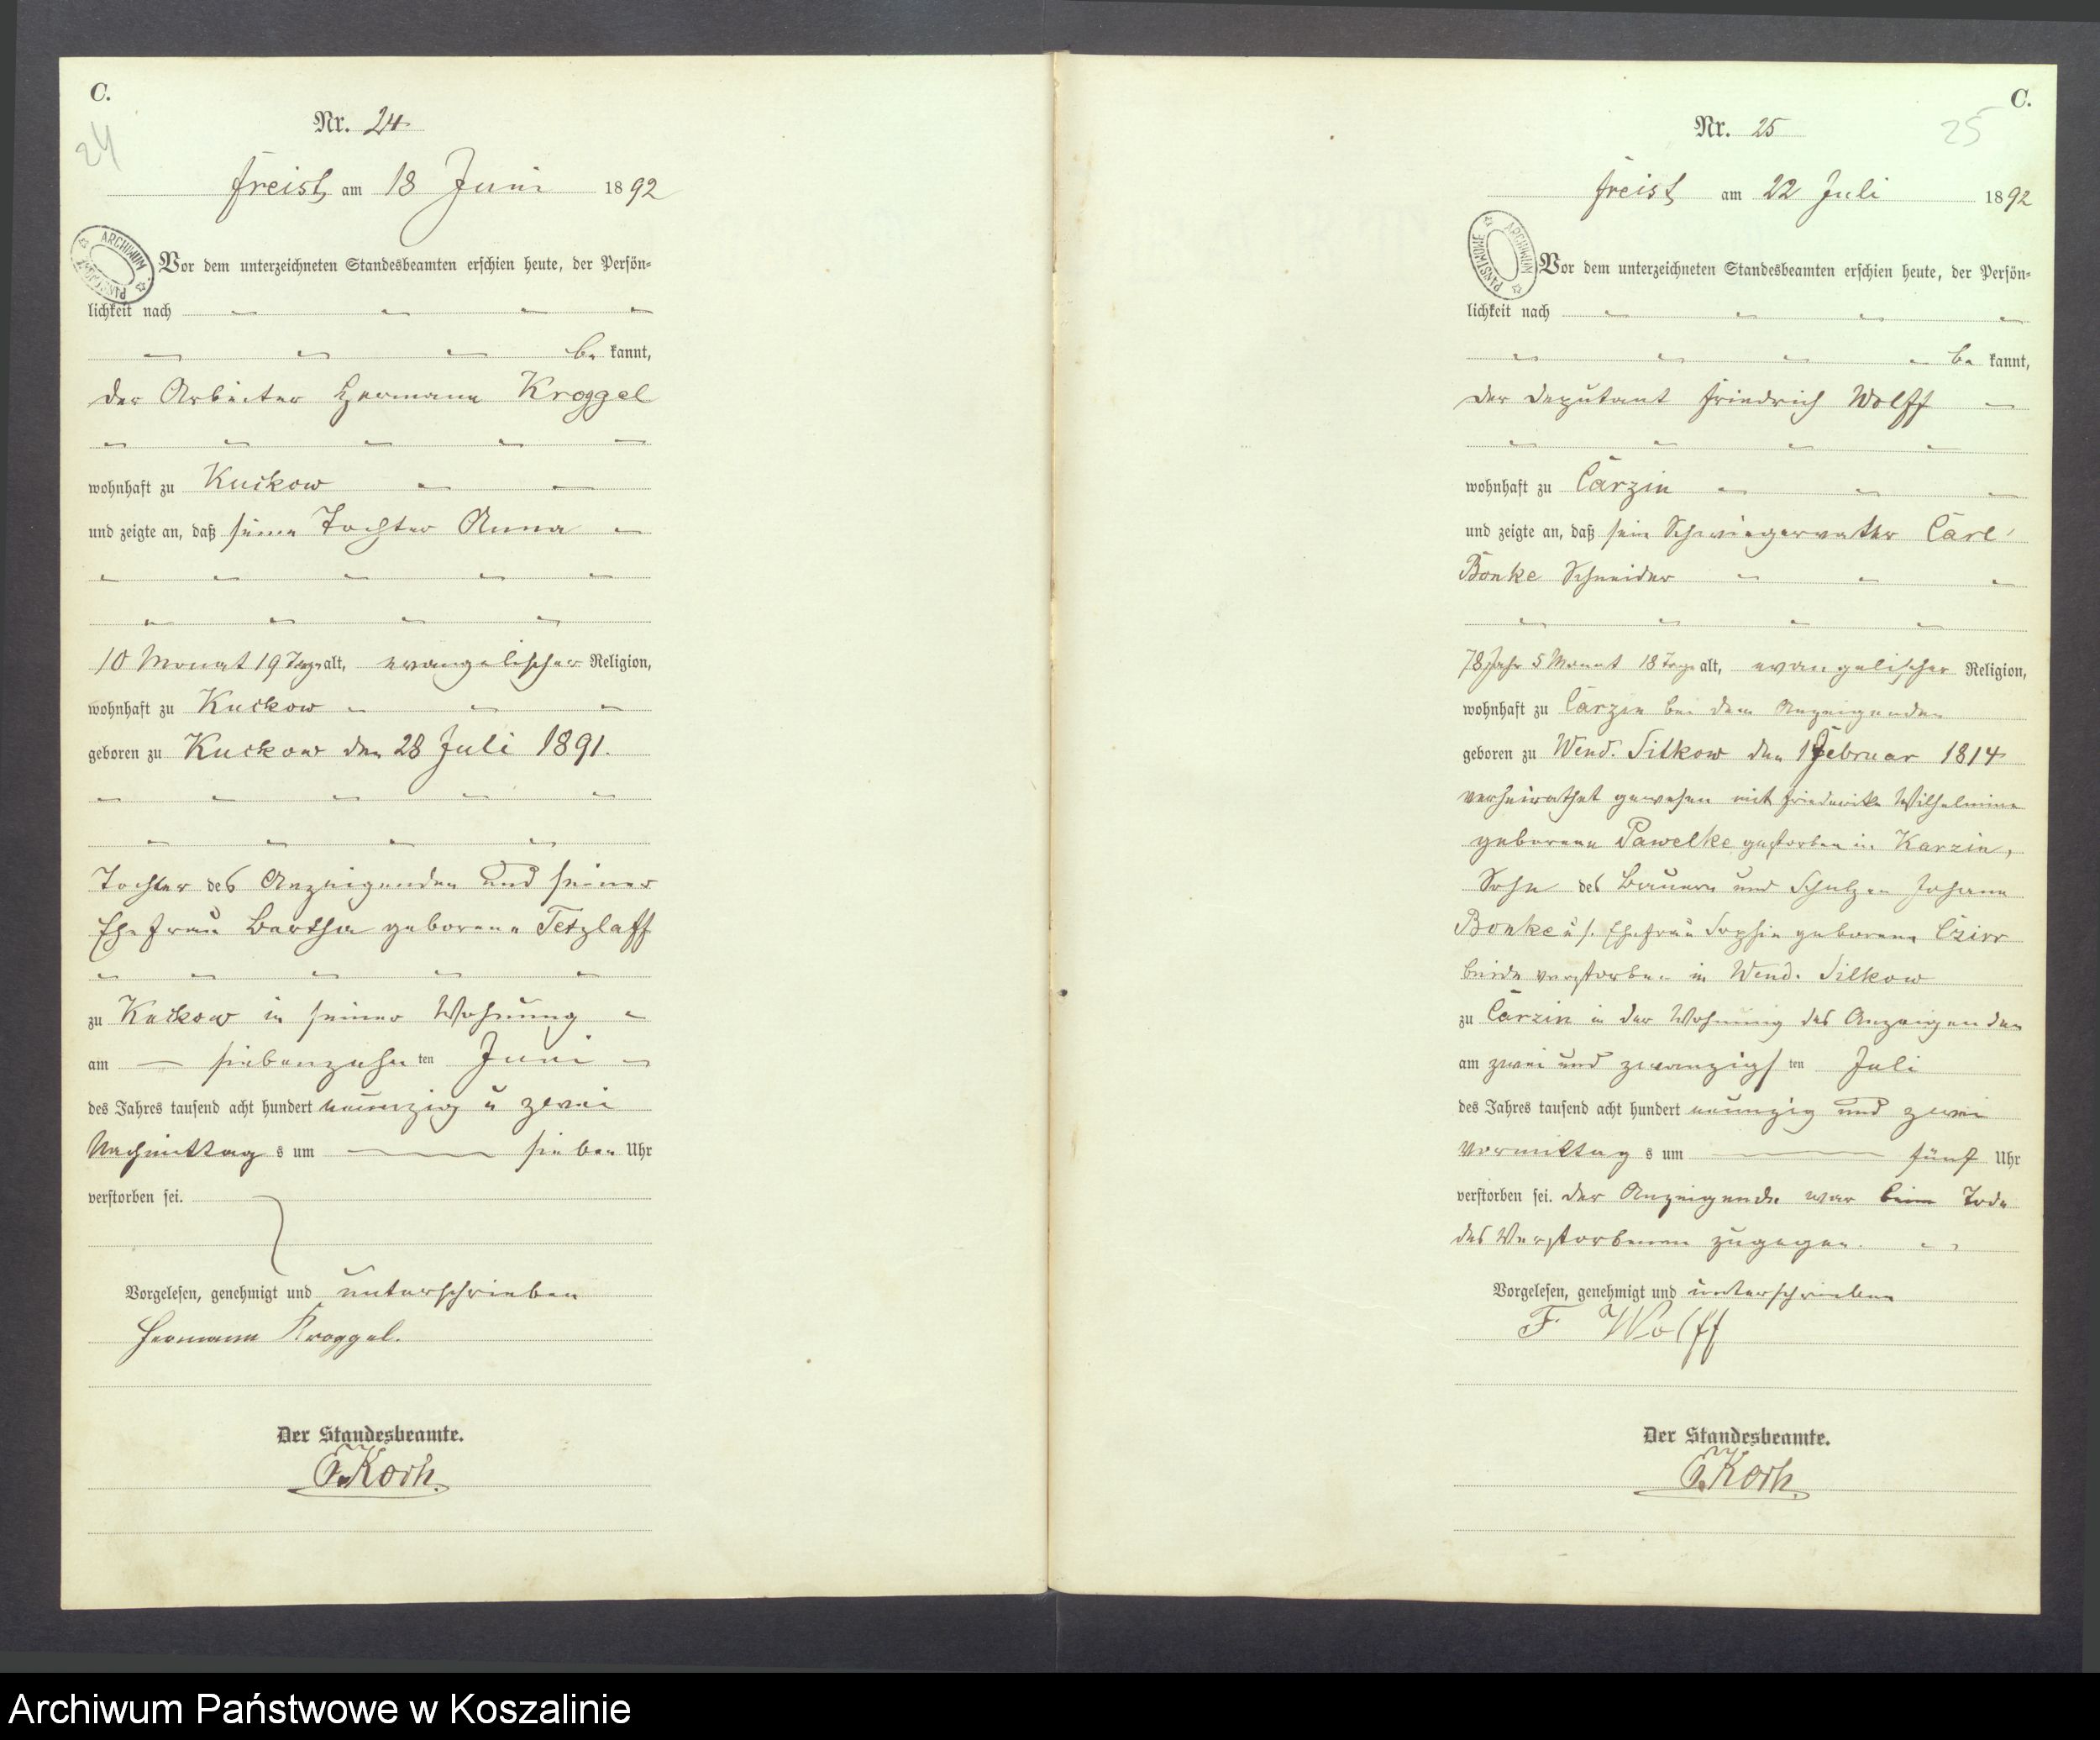 C.
24
Nr. 24
Freist, am 18 Juni 1892
ARCHIWUM
Vor dem unterzeichneten Standesbeamten erschien heute, der Persön-
lichkeit nach
be kannt,
der Arbeiter Hermann Kroggel
wohnhaft zu Kuckow
und zeigte an, daß seine Tochter Anna
10 Monat 19 Tage alt, evangelischer Religion,
wohnhaft zu Kuckow
geboren zu Kuckow den 28 Juli 1891.
Tochter des Anzeigenden und seiner
Ehefrau Bertha geborene Tetzlaff
zu Kuckow in seiner Wohnung
am siebenzehn ten Juni
des Jahres tausend acht hundert neunzig u zwei
Nachmittag s um sieben Uhr
verstorben sei.
Vorgelesen, genehmigt und unterschrieben
Hermann Kroggel.
Der Standesbeamte.
Koch.
C.
25
Nr. 25
Freist am 22 Juli 1892
ARCHIWUM PAŃSTWOWE
Vor dem unterzeichneten Standesbeamten erschien heute, der Persön-
lichkeit nach
be kannt,
der Deputant Friedrich Wolff
wohnhaft zu Carzin
und zeigte an, daß sein Schwiegervater Carl
Bonke Schneider
78 Jahr 5 Monat 18 Tage alt, evangelischer Religion,
wohnhaft zu Carzin bei dem Anzeigenden
geboren zu Wend. Silkow den 1 Februar 1814
verheirathet gewesen mit Friederike Wilhelmine
geborene Pawelke gestorben in Karzin,
Sohn des Bauern und Schulzen Johann
Bonke u s. Ehefrau Sophie geborene Czirr
beide verstorben in Wend. Silkow
zu Carzin in der Wohnung des Anzeigenden
am zwei und zwanzigs ten Juli
des Jahres tausend acht hundert neunzig und zwei
Vormittag s um fünf Uhr
verstorben sei. der Anzeigende war beim Tode
des Verstorbenen zugegen.
Vorgelesen, genehmigt und unterschrieben
F. Wolff
Der Standesbeamte.
Koch.
Archiwum Państwowe w Koszalinie